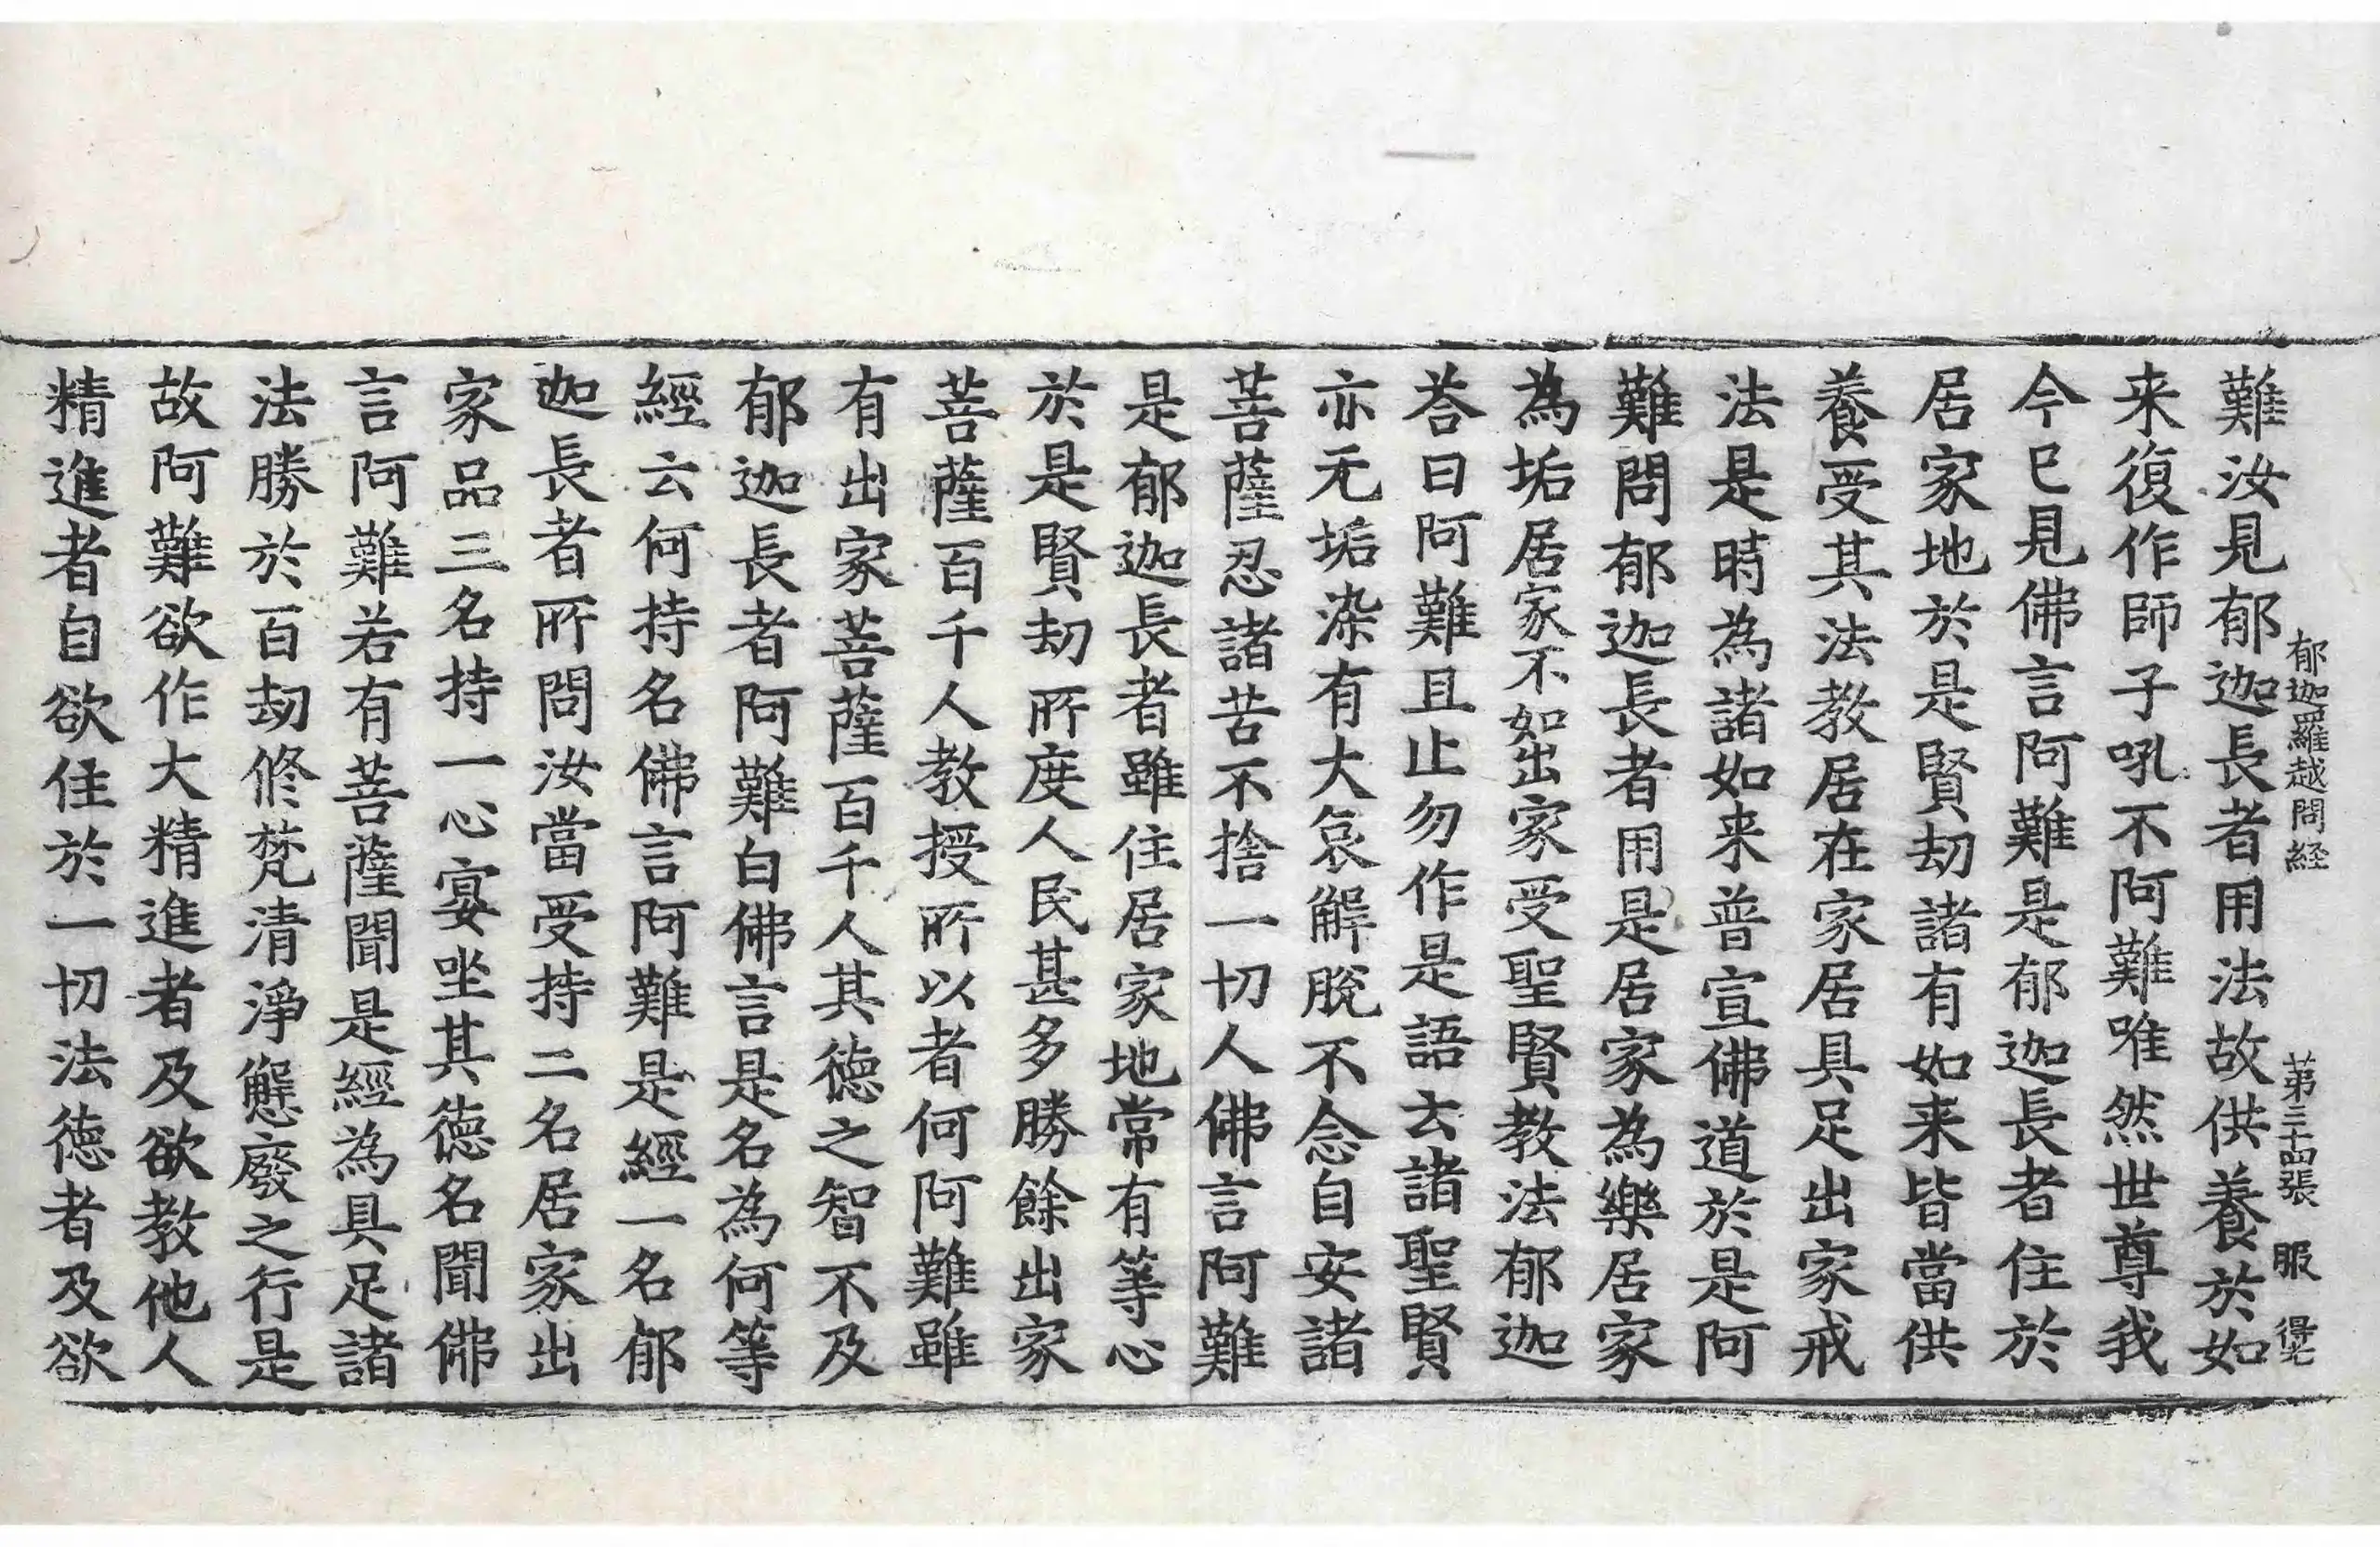 郁迦羅越問経　第三十四張　服
難汝見郁迦長者用法故供養於如
来復作師子吼不阿難唯然世尊我
今已見佛言阿難是郁迦長者住於
居家地於是賢劫諸有如来皆當供
養受其法教居在家居具足出家戒
法是時為諸如来普宣佛道於是阿
難問郁迦長者用是居家為樂居家
為垢居家不如出家受聖賢教法郁迦
荅曰阿難且止勿作是語去諸聖賢
亦无垢染有大哀解脫不念自安諸
菩薩忍諸苦不捨一切人佛言阿難
是郁迦長者雖住居家地常有等心
於是賢劫所度人民甚多勝餘出家
菩薩百千人教授所以者何阿難雖
有出家菩薩百千人其德之智不及
郁迦長者阿難白佛言是名為何等
經云何持名佛言阿難是經一名郁
迦長者所問汝當受持二名居家出
家品三名持一心宴坐其德名聞佛
言阿難若有菩薩聞是經為具足諸
法勝於百劫修梵清淨懈廢之行是
故阿難欲作大精進者及欲教他人
精進者自欲住於一切法德者及欲